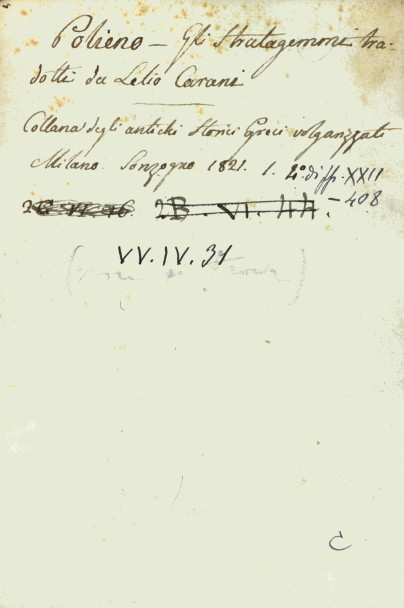 Polieno — Gli Stratagemmi tra-
dotti da Lelio Carani
Collana degli antichi Storici Greci volgarizzati
Milano. Sonzogno 1821. 1. 2° diff. XXII
— 408
2B. VI. 44.
VV. IV. 31
C